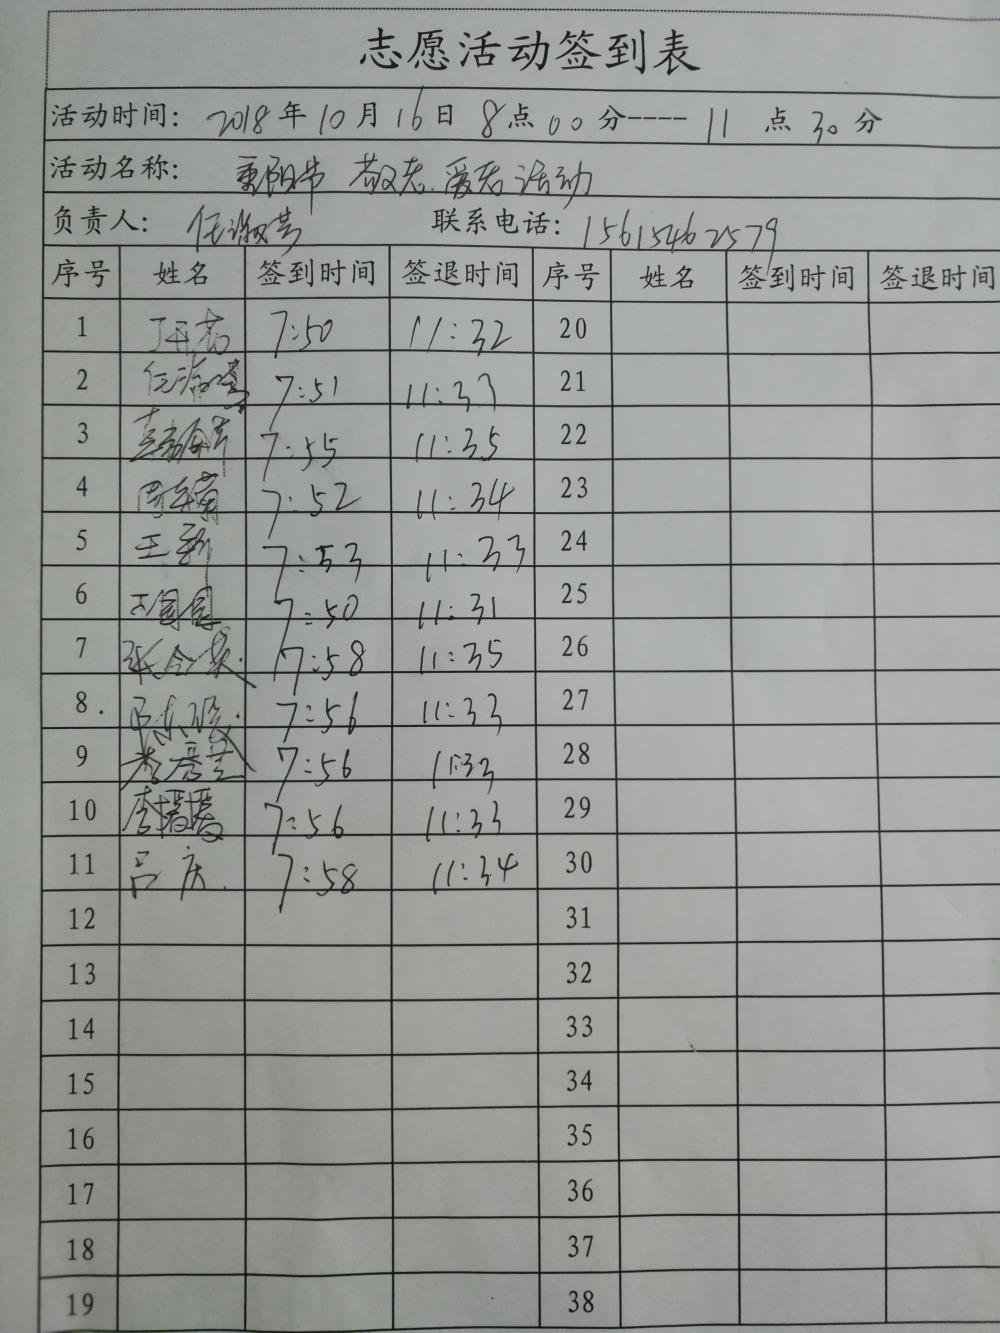 志愿活动签到表
活动时间: 2018年10月16日 8点00分----11点30分
活动名称: 重阳节 敬老.爱老活动
负责人: 任淑芳 联系电话: 15615462579
序号 姓名 签到时间 签退时间 序号 姓名 签到时间 签退时间
1 7:50 11:32 20
2 7:51 11:33 21
3 7:55 11:35 22
4 7:52 11:34 23
5 王新 7:53 11:33 24
6 王园园 7:50 11:31 25
7 张令英 7:58 11:35 26
8. 7:56 11:33 27
9 7:56 11:33 28
10 李 7:56 11:33 29
11 吕庆 7:58 11:34 30
12 31
13 32
14 33
15 34
16 35
17 36
18 37
19 38